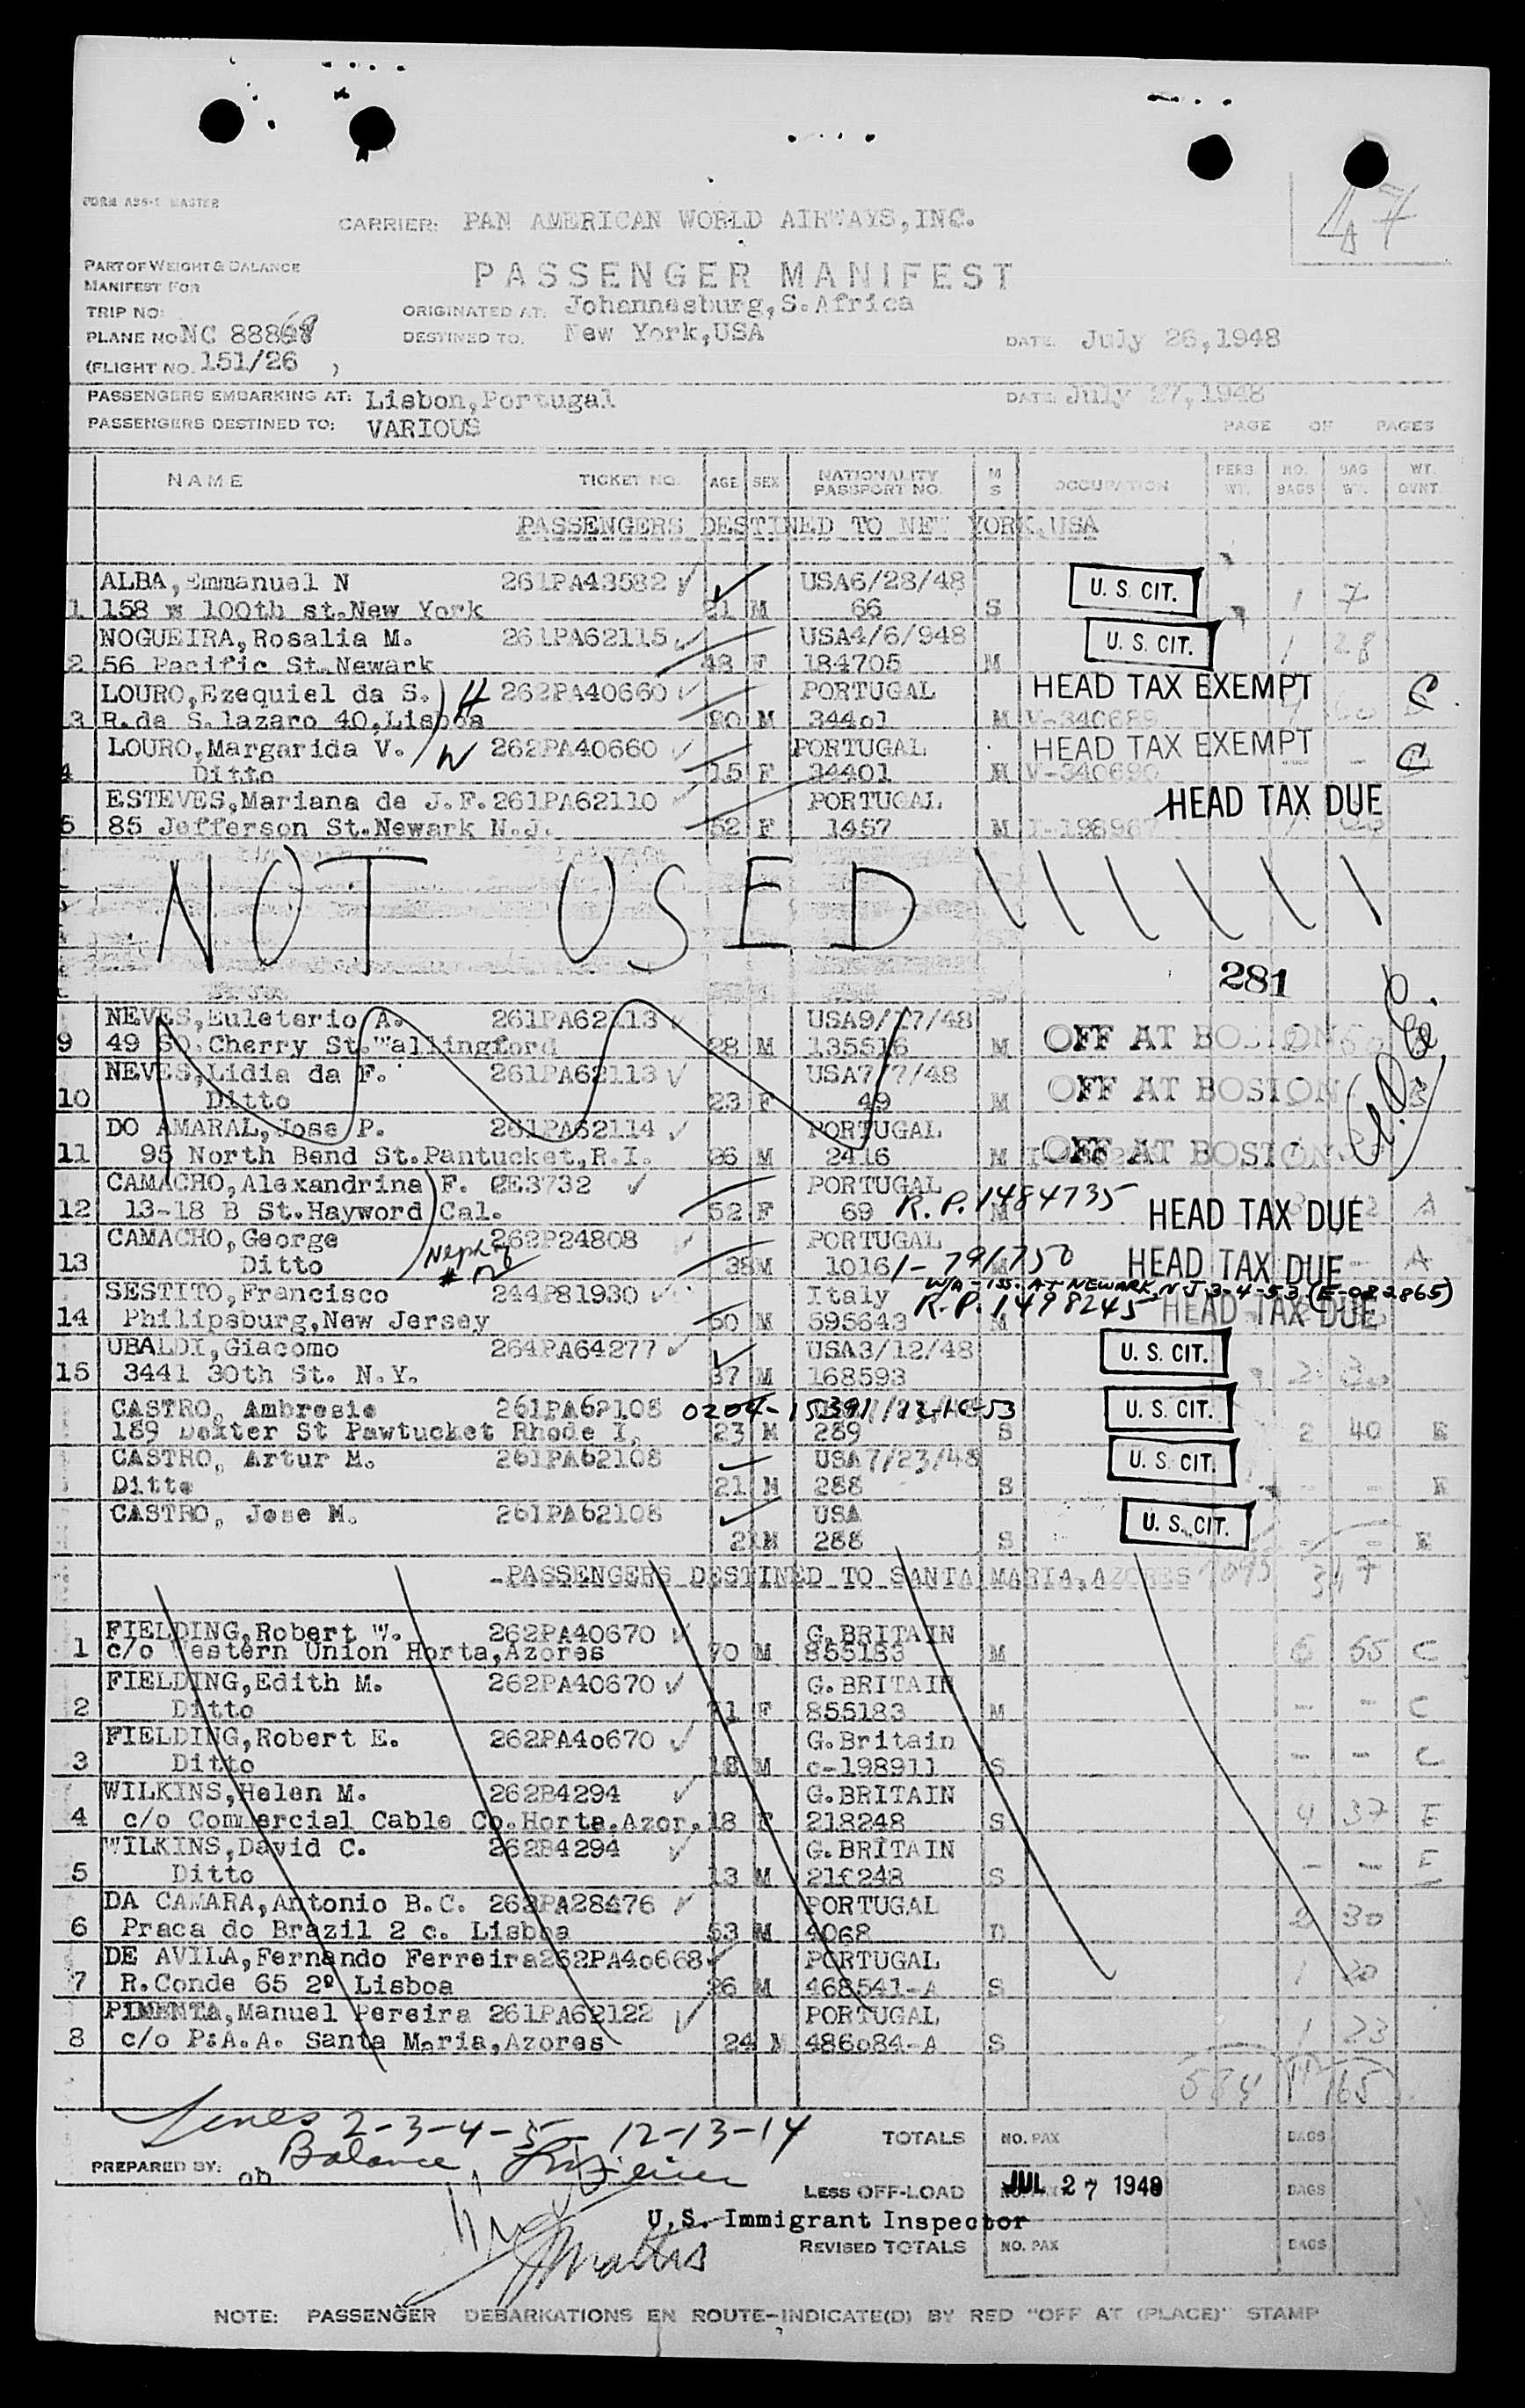 47
FORM A99-1 MASTER
CARRIER: PAN AMERICAN WORLD AIRWAYS,INC.
PART OF WEIGHT & BALANCE
MANIFEST FOR
PASSENGER MANIFEST
TRIP NO:
ORIGINATED AT. Johannesburg,S.Africa
PLANE NO NC 888
DESTINED TO. New York,USA
DATE. July 26,1948
(FLIGHT NO. 151/26 )
PASSENGERS EMBARKING AT: Lisbon,Portugal
DATE July 27,1948
PASSENGERS DESTINED TO: VARIOUS
PAGE OF PAGES
NAME TICKET NO. AGE SEX NATIONALITY PASSPORT NO. M S OCCUPATION PERS WT. NO. BAGS BAG WT. WT. OVNT.
PASSENGERS DESTINED TO NEW YORK,USA
ALBA,Emmanuel N 261PA43582 USA6/28/48 U. S. CIT.
1 158 w 100th st.New York 21 M 66 S 1 7
NOGUEIRA,Rosalia M. 261PA62115 USA4/6/948 U. S. CIT.
2 56 Pacific St.Newark 48 F 184705 M 1 28
LOURO,Ezequiel da S. H 262PA40660 PORTUGAL HEAD TAX EXEMPT C
3 R.da S.lazaro 40,Lisboa M 344o1 M V-340689
LOURO,Margarida V. W 262PA40660 PORTUGAL HEAD TAX EXEMPT C
4 Ditto F 34401 M V-340690
ESTEVES,Mariana de J.F. 261PA62110 PORTUGAL HEAD TAX DUE
5 85 Jefferson St.Newark N.J. 52 F 1457 M
NOT USED
281
NEVES,Euleterio A. 261PA62113 USA9/17/48
9 49 SO.Cherry St.Wallingford 28 M 135516 M OFF AT BOSTON
NEVES,Lidia da F. 261PA62113 USA7/7/48
10 Ditto 23 F 49 M OFF AT BOSTON
DO AMARAL,Jose P. 261PA62114 PORTUGAL
11 95 North Bend St.Pantucket,R.I. 26 M 2416 M OFF AT BOSTON
CAMACHO,Alexandrina F. CE3732 PORTUGAL R.P. 1484735
12 13-18 B St.Hayword Cal. 52 F 69 M HEAD TAX DUE A
CAMACHO,George 262P24808 PORTUGAL
13 Ditto Nephew 38M 1016 1-791750 HEAD TAX DUE A
W/A-ISS. AT NEWARK, N J 3-4-53 (E-082865)
SESTITO,Francisco 244P81930 Italy R.P. 1498245
14 Philipsburg,New Jersey 50 M 595643 M HEAD TAX DUE
UBALDI,Giacomo 264PA64277 USA3/12/48 U. S. CIT.
15 3441 30th St. N.Y. 37 M 168593 2
CASTRO, Ambrosio 261PA62108 0204-15391/12-16-53 U. S. CIT.
189 Dexter St Pawtucket Rhode I, 23 M 289 S 2 40 E
CASTRO, Artur M. 261PA62108 USA 7/23/48 U. S. CIT.
Ditto 21 M 288 S - - E
CASTRO, Jose M. 261PA62108 USA U. S. CIT.
21M 288 S - - E
-PASSENGERS DESTINED TO SANTA MARIA,AZORES 347
FIELDING,Robert W. 262PA40670 G.BRITAIN
1 c/o Western Union Horta,Azores 70 M 855183 M 6 55 C
FIELDING,Edith M. 262PA40670 G.BRITAIN
2 Ditto F 855183 M - - C
FIELDING,Robert E. 262PA4o670 G.Britain
3 Ditto 18 M c-198911 S - - C
WILKINS,Helen M. 262B4294 G.BRITAIN
4 c/o Commercial Cable Co.Horta.Azor. 18 F 218248 S 4 37 E
WILKINS,David C. 262B4294 G.BRITAIN
5 Ditto 13 M 218248 S - - E
DA CAMARA,Antonio B.C. 262PA28476 PORTUGAL
6 Praca do Brazil 2 c. Lisboa 53 M 4068 D 2 30
DE AVILA,Fernando Ferreira262PA4o668 PORTUGAL
7 R.Conde 65 2º Lisboa 26 M 468541-A S 1 20
PIMENTA,Manuel Pereira 261PA62122 PORTUGAL
8 c/o P.A.A. Santa Maria,Azores 24 M 486o84-A S 1 23
584 11 165
Lines 2-3-4-5- 12-13-14
Balance
TOTALS NO. PAX BAGS
PREPARED BY:
LESS OFF-LOAD JUL 27 1948 BAGS
U.S. Immigrant Inspector
REVISED TOTALS NO. PAX BAGS
NOTE: PASSENGER DEBARKATIONS EN ROUTE-INDICATE(D) BY RED "OFF AT (PLACE)" STAMP